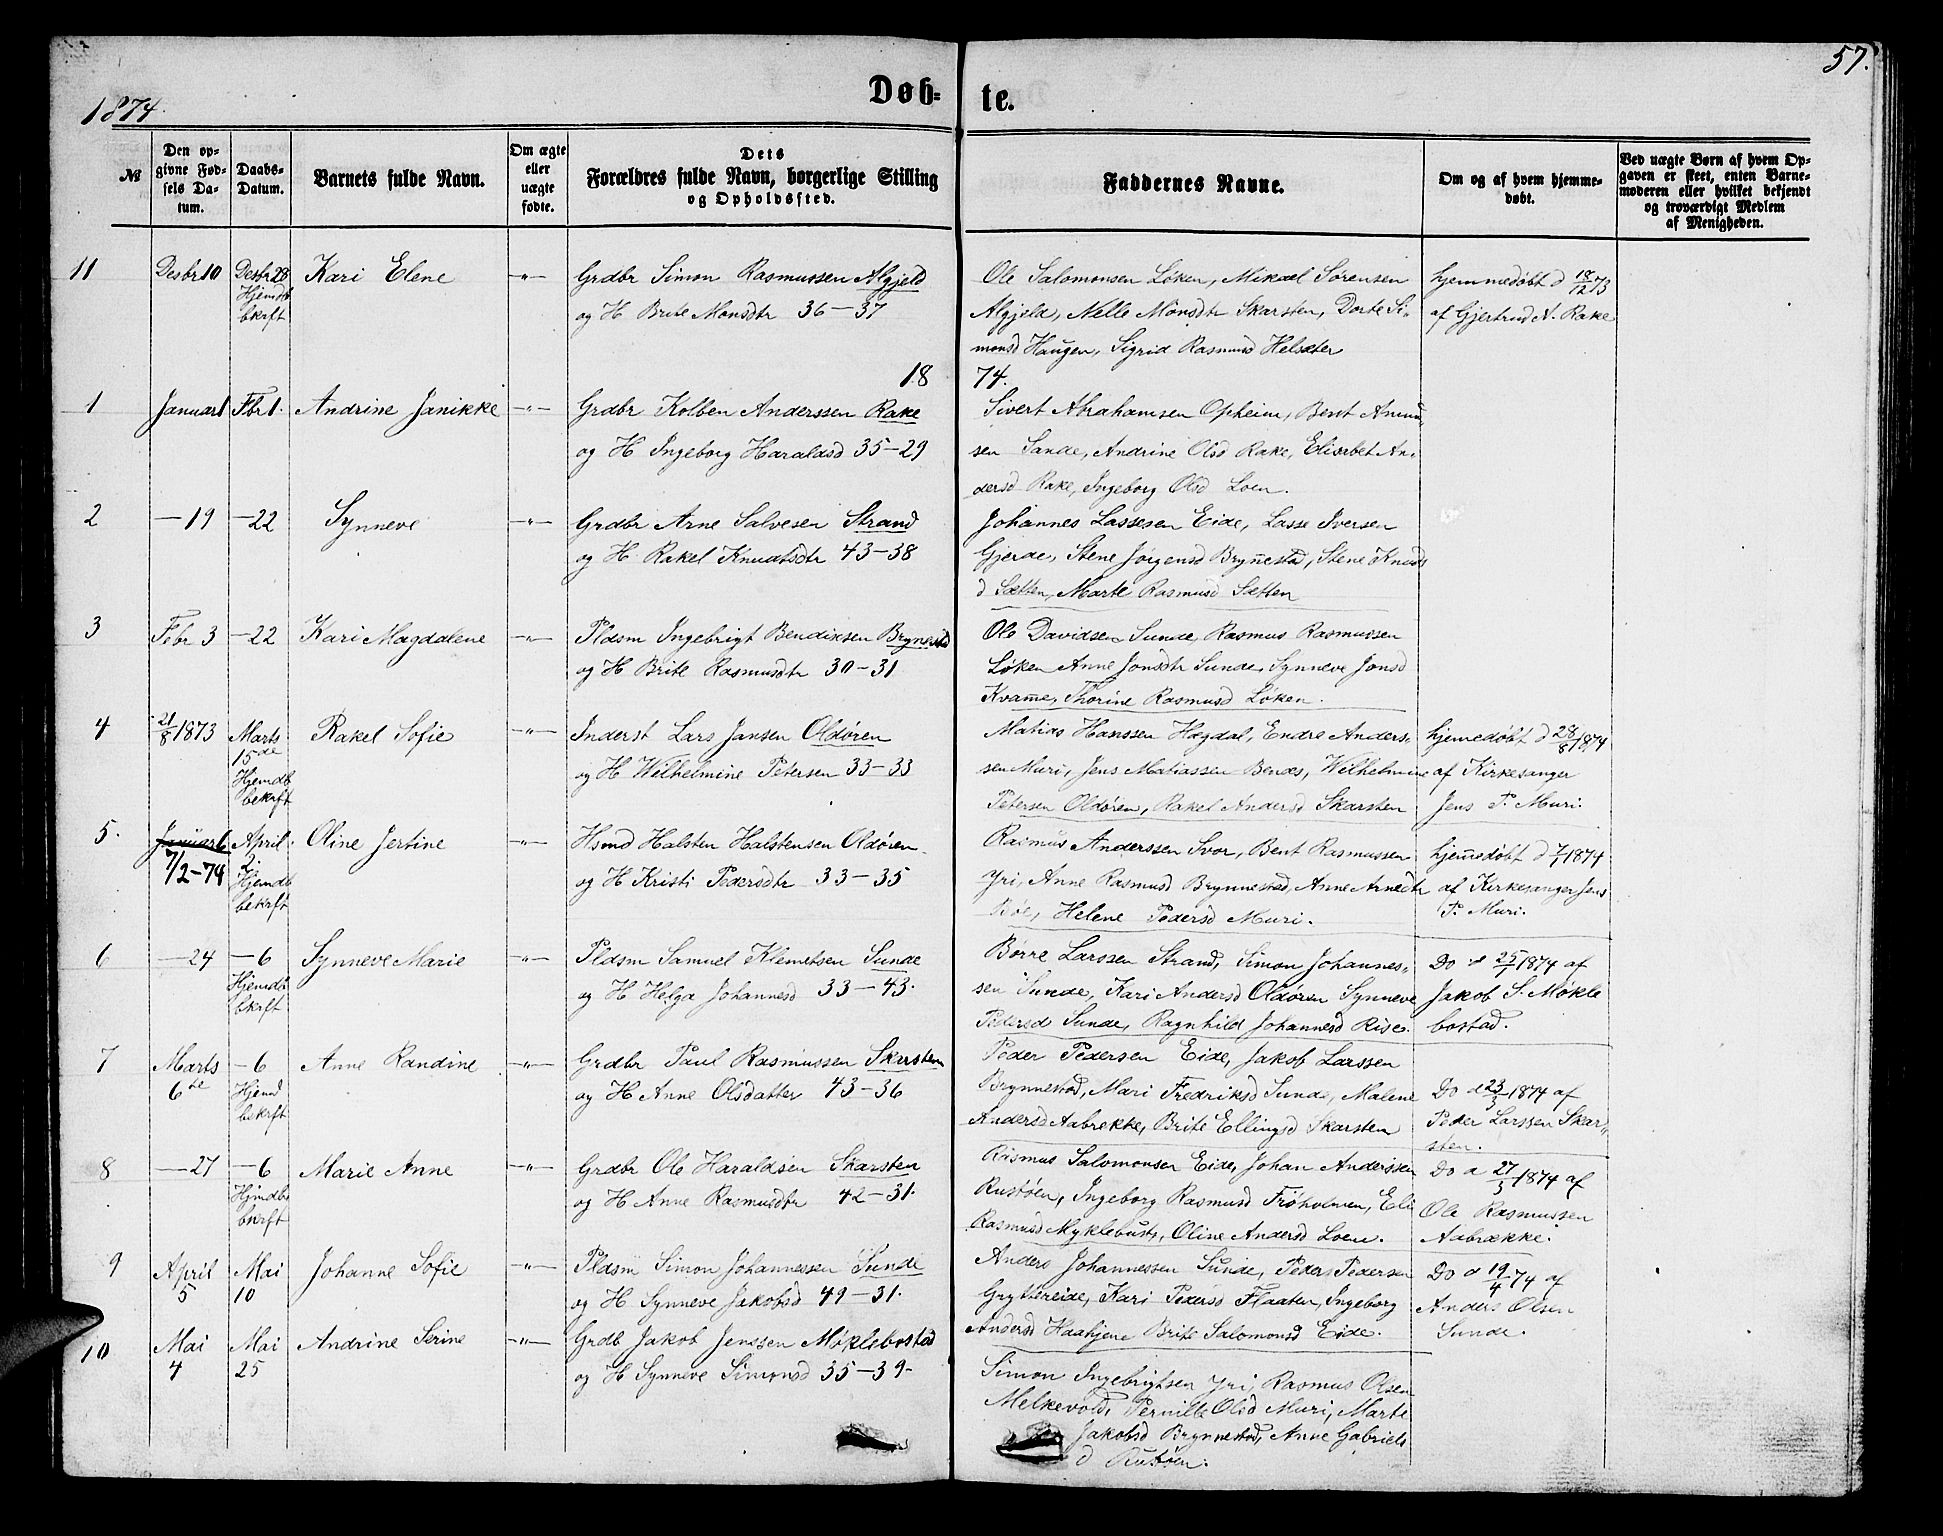 57.
1874.
Døb-
te.
№
Den op-
givne Fød-
sels Da-
tum.
Daabs-
Datum.
Barnets fulde Navn.
Om ægte
eller
uægte
fødte.
Dets
Forældres fulde Navn, borgerlige Stilling
og Opholdssted.
Faddernes Navne.
Om og af hvem hjemme-
døbt.
Ved uægte Børn af hvem Op-
gaven er skeet, enten Barne-
moderen eller hvilket bekjendt
og troværdigt Medlem
af Menigheden.
11
Desbr 10
Desbr 28
Hjemdb
bkrft
Kari Elene
—"—
Grdbr Simon Rasmussen Algjeld
og H Brite Monsdtr 36–37
Ole Salomonsen Løken, Mikael Sørensen
Algjeld, Nelle Monsdtr Skarsten, Dorte Si-
monsd Haugen, Sigrid Rasmusd Helsæter
hjemmedøbt d 18/12 73
af Gjertrud A. Rake
18
74.
1
Januar 1
Fbr 1.
Andrine Janikke
—"—
Grdbr Kolben Anderssen Rake
og H Ingeborg Haraldsd 35–29
Sivert Abrahamsen Opheim, Bent Amun-
sen Sande, Andrine Olsd Rake, Elisabet An-
dersd Rake, Ingeborg Olsd Loen.
2
— 19
— 22
Synneve
—"—
Grdbr Arne Salvesen Strand
og H. Rakel Knudtsdtr 43–38
Johannes Lassesen Eide, Lasse Iversen
Gjerde, Stene Jørgensd Brynnestad, Stene Knuds
d Sætten, Marte Rasmusd Sætten
3
Febr 3
— 22
Kari Magdalene
—"—
Pldsm Ingebrigt Bendixsen Brynestad
og H Brite Rasmusdtr 30–31
Ole Davidsen Sunde, Rasmus Rasmussen
Løken Anne Jonsdtr Sunde, Synneve Jonsd
Kvame, Thorine Rasmusd Løken.
4
21/8 1873
Marts
15de
Hjemdb
bekrft
Rakel Sofie
—"—
Inderst Lars Jansen Oldøren
og H Wilhelmine Petersen 33–33
Matias Hanssen Hægdal, Endre Anders-
sen Muri, Jens Matiassen Benæs, Wilhelmine
Petersen Oldøren, Rakel Andersd Skarsten
hjemedøbt d 28/8 1874
af Kirkesanger
Jens P. Muri.
5.
Januar 6
7/2–74
April
2.
Hjemdb
bekrft
Oline Jertine
—"—
Hsmd Halsten Halstensen Oldøren
og H Kristi Pedersdtr 33–35
Rasmus Anderssen Svor, Bent Rasmussen
Yri, Anne Rasmusd Brynnestad, Anne Arnedtr
Bøe, Helene Pedersd Muri.
hjemedøbt d 7/1 1874
af Kirkesanger Jens
P. Muri.
6
— 24
— 6
Hjemdb
bkrft
Synneve Marie
—"—
Pldsm Samuel Klemetsen Sunde
og H Helga Johannesd 33–43.
Børre Larssen Strand, Simon Johannes-
sen Sunde, Kari Andersd Oldøren Synneve
Pedersd Sunde, Ragnhild Johannesd Rise.
Do d 25/1 1874 af
Jakob S. Møkle
bostad.
7
Marts
6te
— 6
Hjemd
bekrft
Anne Randine
—"—
Grdbr Paul Rasmussen Skarsten
og H Anne Olsdatter 43–36
Peder Pedersen Eide, Jakob Larssen
Brynnestad, Mari Fredriksd Sunde, Malene
Andersd Aabrekke, Brite Ellingsd Skarsten
Do d 23/3 1874 af
Peder Larssen Skar-
sten.
8
— 27
— 6
Hjmdb
bkrft
Marie Anne
—"—
Grdbr Ole Haraldsen Skarsten
og H Anne Rasmusdtr 42–31.
Rasmus Salomonsen Eide, Johan Anderssen
Rustøen, Ingeborg Rasmusd Frøholmen, Eli
Rasmusd Myklebust, Oline Andersd Loen.
Do d 27/3 1874 af
Ole Rasmussen
Aabrække.
9
April
5
Mai
10
Johanne Sofie
—"—
Pldsm Simon Johannessen Sunde
og H Synneve Jakobsd 49–31.
Anders Johannessen Sunde, Peder Pedersen
Gryttereide, Kari Pedersd Flaaten, Ingeborg
Andersd Haahjene Brite Salomonsd Eide.
Do d 19/4 74 af
Anders Olsen
Sunde.
10
Mai
4
Mai
25
Andrine Serine
—"—
Grdb Jakob Jenssen Møklebostad
og H Synneve Simonsd 35–39.
Simon Ingebrigtsen Yri, Rasmus Olsen
Melkevold, Pernille Olsd Muri, Marte
Jakobsd Brynnestad, Anne Gabriels
d Rustøen.